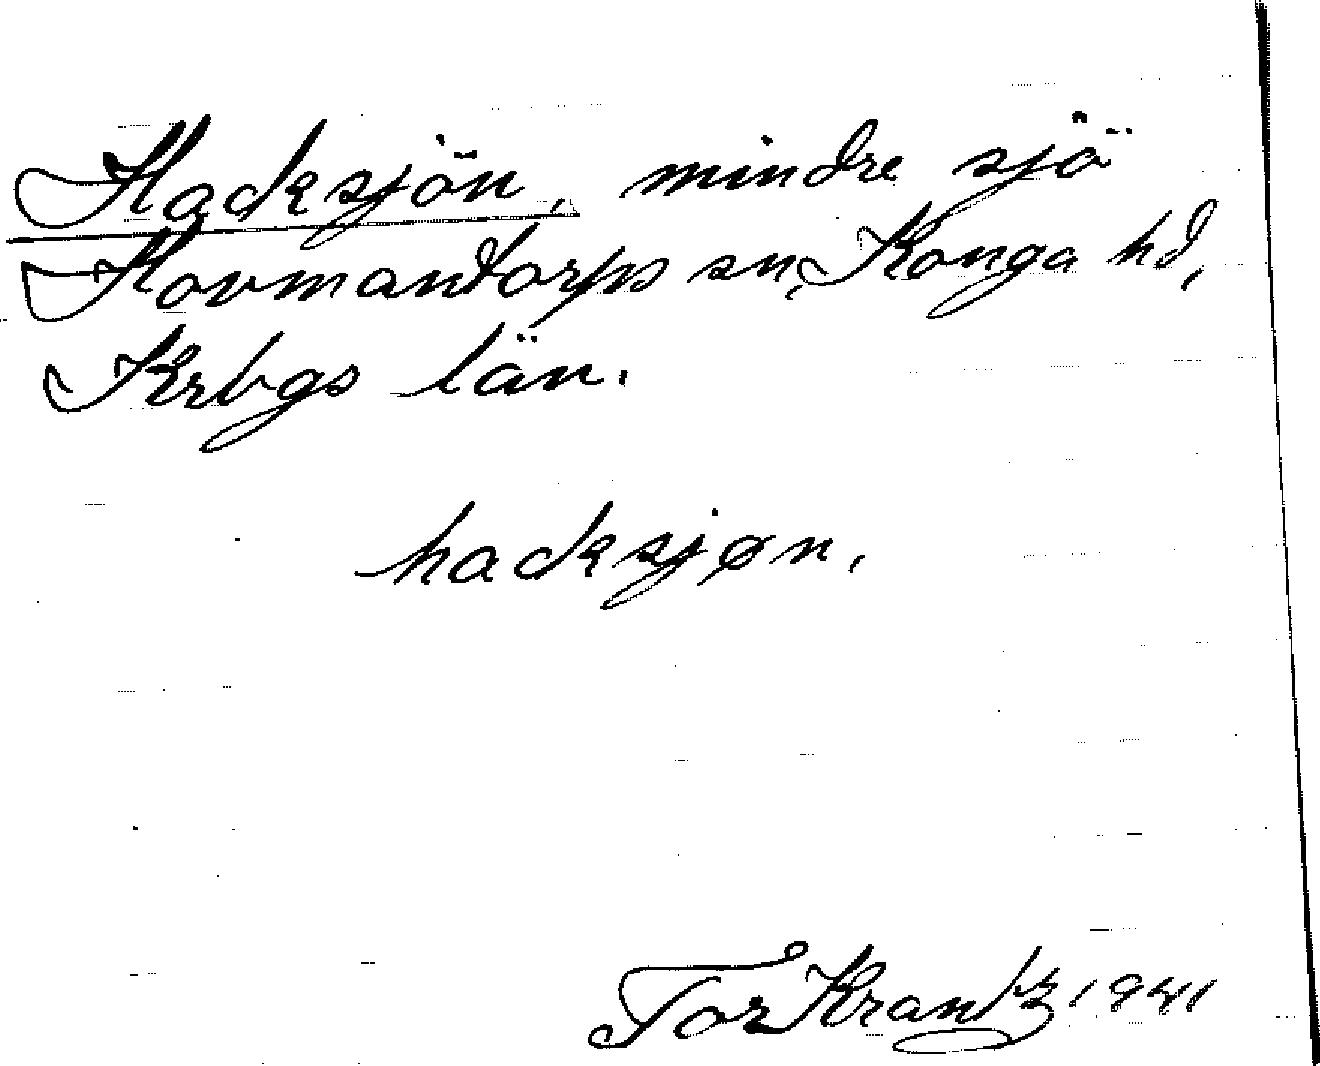 Hacksjön, mindre sjö
Hovmantorps sn, Konga hd,
Krbgs län.
hacksjøn,
Tor Krantz 1941